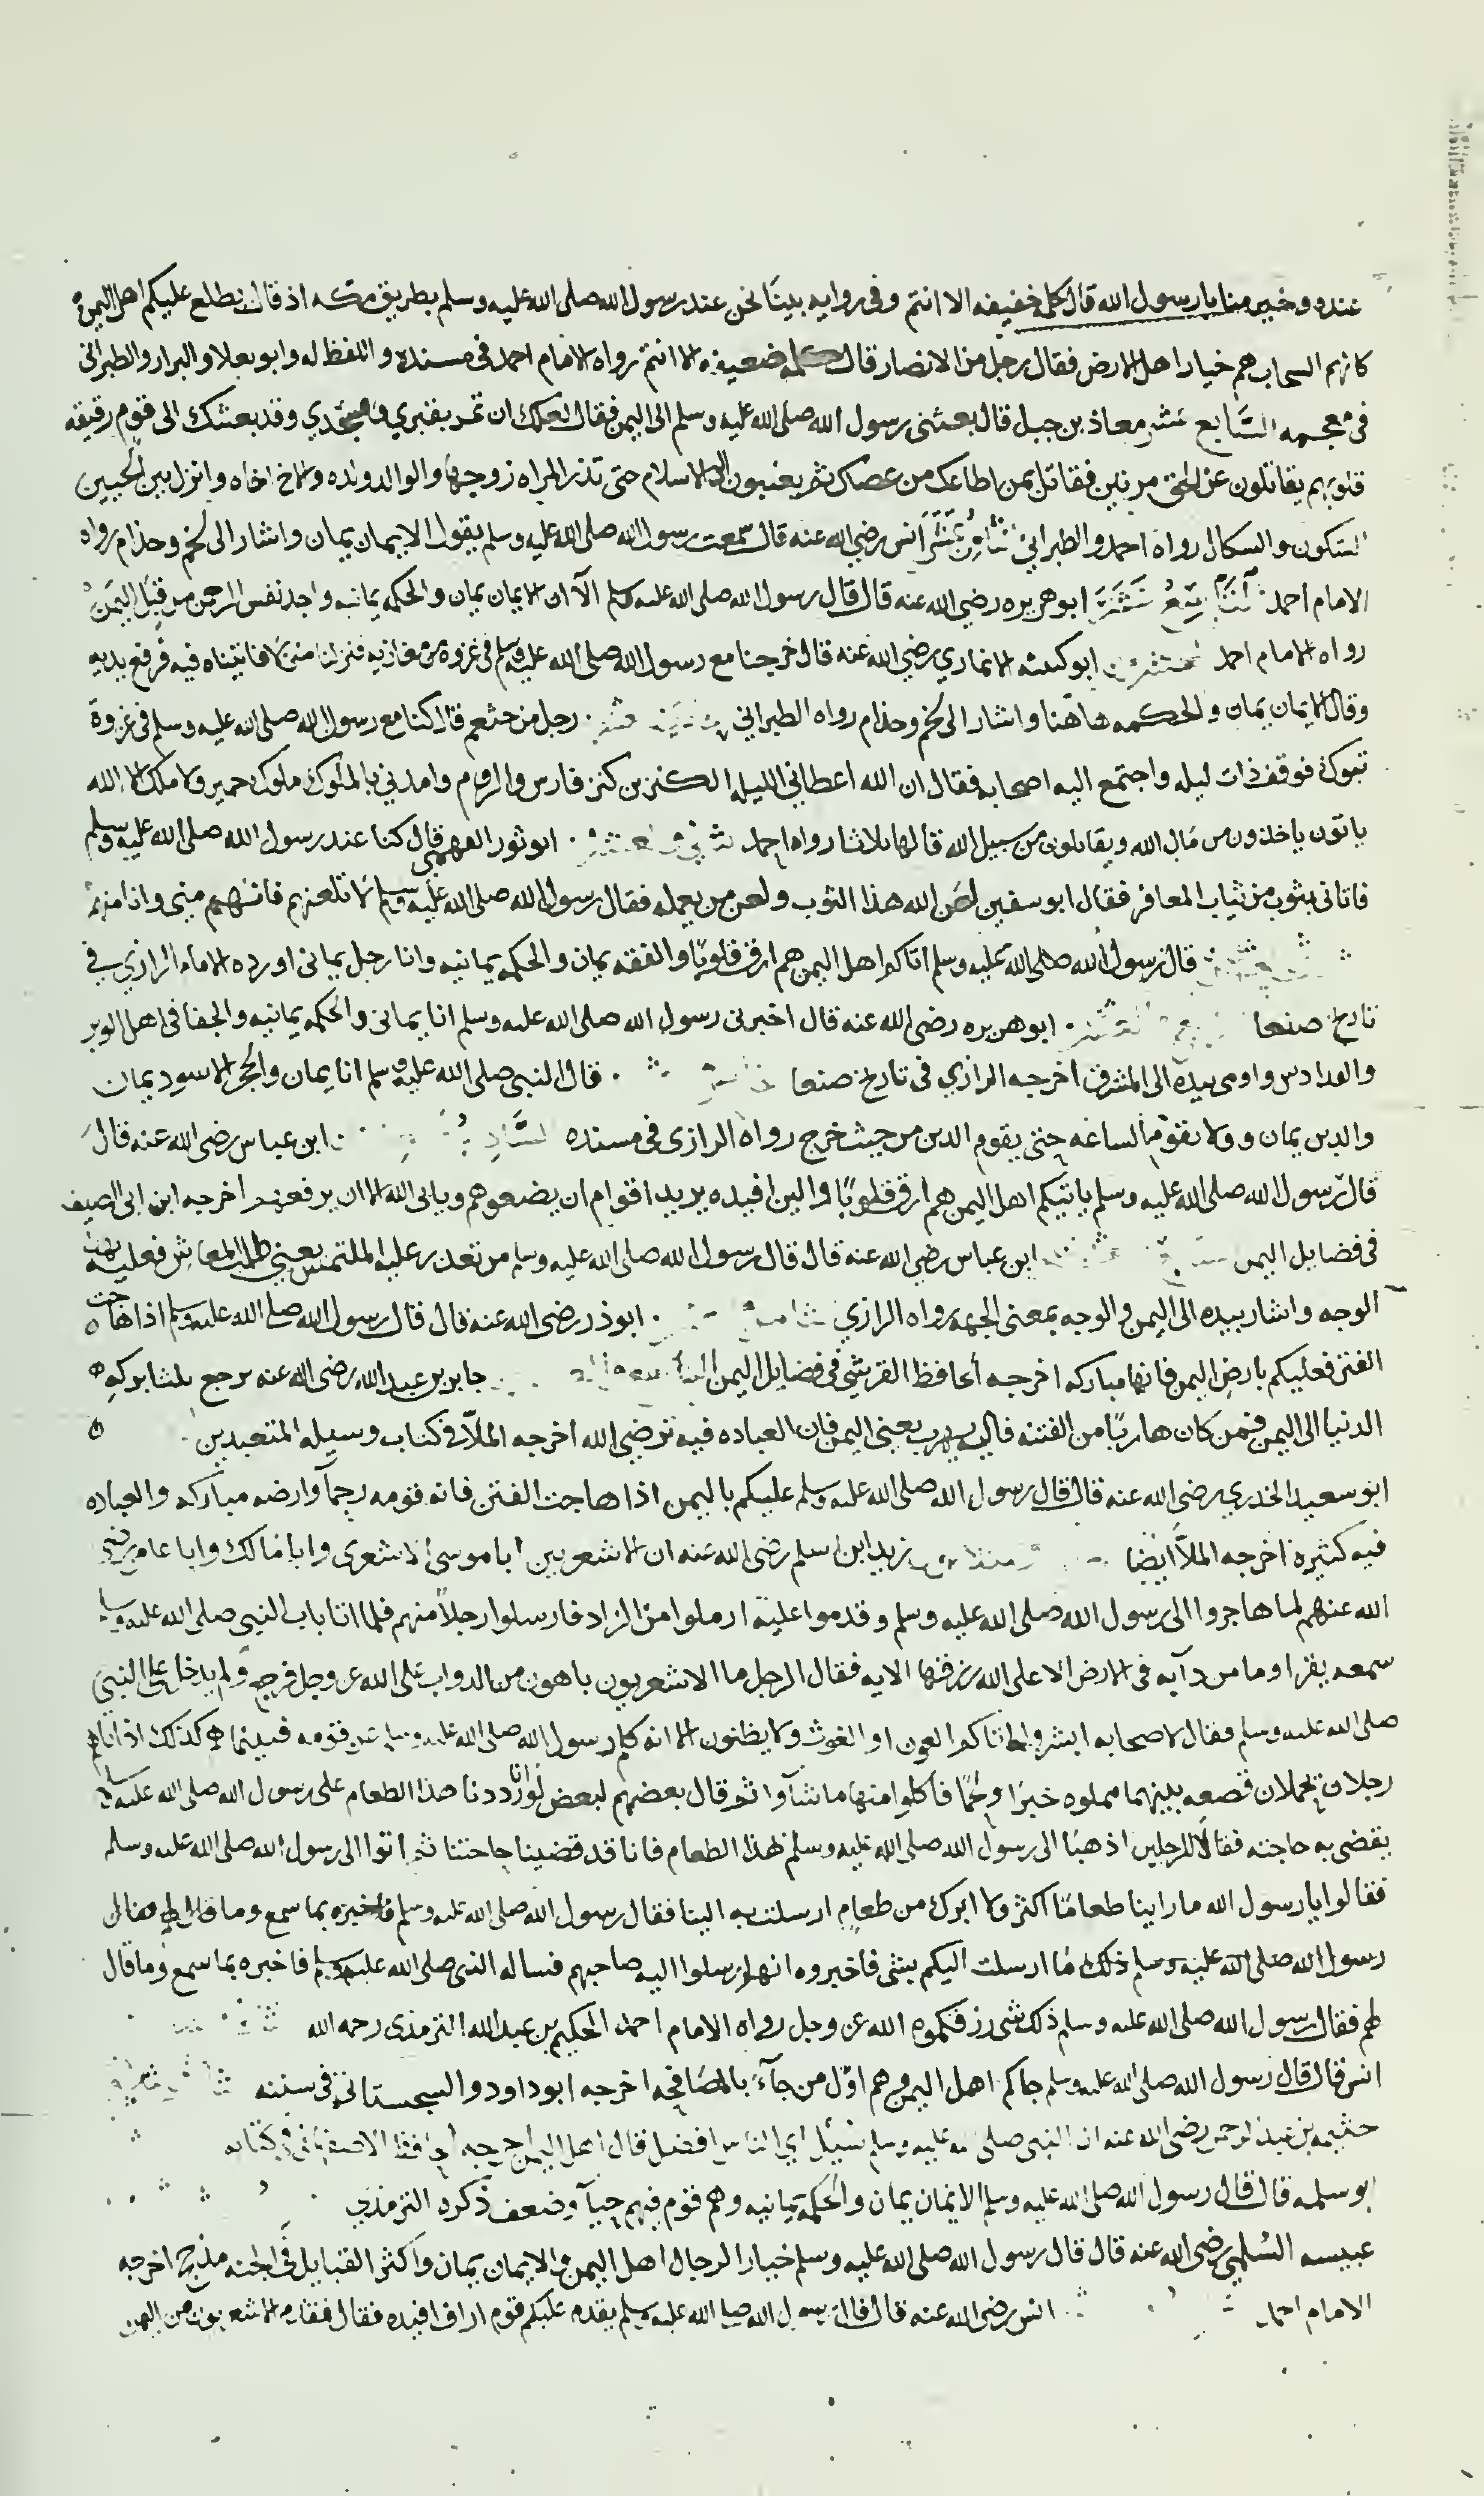 عنده ومن خير منا يا رسول الله قال كلمه خفيفه الا انتم وفى روايه بينا نحن عند رسول الله صلى الله عليه وسلم بطريق مكه اذ قال يطلع عليكم اهل اليمن
كانهم السحاب هم خيار اهل الارض فقال رجل من الانصار قال كلمه ضعيفه الا انتم رواه الامام احمد فى مسنده واللفظ له وابو يعلا والبزار والطبرانى
فى معجمه السابع عشر معاذ بن جبل قال بعثنى رسول الله صلى الله عليه وسلم الى اليمن فقال لعلك ان تمر بقبري ومسجدي وقد بعثتك الى قوم رقيقه
قلوبهم يقاتلون عن الحق مرتين فقاتل بمن اطاعك من عصاك ثم يعنبون الى الاسلام حتى تذر المراه زوجها والوالد ولده والاخ اخاه وانزل بين الحيين
السكون والسكال رواه احمد والطبراني ثامن عشر انس رضي الله عنه قال سمعت رسول الله صلى الله عليه وسلم يقول الايمان يمان واشار الى لخم وجذام رواه
الامام احمد تاسع عشر ابو هريره رضي الله عنه قال قال رسول الله صلى الله عليه وسلم الآ ان الايمان يمان والحكمه يمانيه واجد نفس الرحمن من قبل اليمن
رواه الامام احمد عشرون ابو كبشه الانماري رضي الله عنه قال خرجنا مع رسول الله صلى الله عليه وسلم فى غزوة من مغازيه فنزلنا منزلا فاتيناه فيه فرفع يديه
وقال الايمان يمان والحكمه هاهنا واشار الى لخم وجذام رواه الطبراني رجل من خثعم قال كنا مع رسول الله صلى الله عليه وسلم فى غزوة
تبوك فوقف ذات ليله واجتمع اليه اصحابه فقال ان الله اعطاني الليله الكنزين كنز فارس والروم وامدني بالملوك ملوك حمير ولا ملك الا الله
ياتون ياخذون من مال الله ويقاتلون من سبيل الله قالها ثلاثا رواه احمد ابو ثور الفهمى قال كنا عند رسول الله صلى الله عليه وسلم
فاتانى بثوب من ثياب المعافر فقال ابو سفين لعن الله هذا الثوب ولعن من يعمله فقال رسول الله صلى الله عليه وسلم لا تلعنهم فانهم منى وانا منهم
قال رسول الله صلى الله عليه وسلم اتاكم اهل اليمن هم ارق قلوبا والفقه يمان والحكمه يمانيه وانا رجل يمانى اورده الامام الرازي في
تاريخ صنعا ابو هريره رضى الله عنه قال اخبرنى رسول الله صلى الله عليه وسلم انا يمانى والحكمه يمانيه والجفا فى اهل الوبر
والفدادين واومى بيده الى المشرق اخرجه الرازي فى تاريخ صنعا قال النبى صلى الله عليه وسلم انا يمان والحجر الاسود يمان
والدين يمان وولا تقوم الساعه حتى يقوم الدين من حيث خرج رواه الرازى فى مسنده ابن عباس رضى الله عنه قال
قال رسول الله صلى الله عليه وسلم ياتيكم اهل اليمن هم ارق قلوبا والين افيده يريد اقوام ان يضعوهم ويابى الله الا ان يرفعهم اخرجه ابن ابى الصيف
فى فضايل اليمن ابن عباس رضي الله عنه قال قال رسول الله صلى الله عليه وسلم من تعذر عليه الملتمس يعني طلب المعاش فعليه بهذا
الوجه واشار بيده الى اليمن والوجه بمعنى الجهه رواه الرازي ثامن ابو ذر رضى الله عنه قال قال رسول الله صلى الله عليه وسلم اذا هاجت
الفتن فعليكم بارض اليمن فانها مباركه اخرجه الحافظ القريشي فى فضايل اليمن جابر بن عبد الله رضى الله عنه يرجع ثلثا بركه
الدنيا الى اليمن فمن كان هاربا من الفتنه فاليه يهرب يعنى اليمن فان العباده فيه ترضي الله اخرجه الملا فى كتاب وسيله المتعبدين
ابو سعيد الخدري رضى الله عنه قال قال رسول الله صلى الله عليه وسلم عليكم باليمن اذا هاجت الفتن فانه قومه رحمآ وارضه مباركه والعباده
فيه كثيره اخرجه الملا ايضا زيد ابن اسلم رضى الله عنه ان الاشعريين ابا موسى الاشعرى وابا مالك وابا عامر رضي
الله عنهم لما هاجروا الى رسول الله صلى الله عليه وسلم وقدموا عليه ارملوا من الزاد فارسلوا رجلا منهم فلما اتا باب النبي صلى الله عليه وسلم
سمعه يقرا وما من دآبه فى الارض الا على الله رزقها الايه فقال الرجل ما الاشعريون باهون من الدواب على الله عز وجل فرجع ولم يدخل على النبي
صلى الله عليه وسلم فقال لاصحابه ابشروا اتاكم العون او الغوث ولا يظنون الا انه كلم رسول الله صلى الله عليه وسلم قومه فبينما هم كذلك اذ اتاهم
رجلان يحملان قصعه بينهما مملوه خبزا ولحما فاكلوا منها ما شآوا ثم قال بعضهم لبعض لو انا رددنا هذا الطعام على رسول الله صلى الله عليه وسلم
يقضى به حاجته فقالا للرجلين اذهبا الى رسول الله صلى الله عليه وسلم بهذا الطعام فانا قد قضينا حاجتنا ثم اتوا الى رسول الله صلى الله عليه وسلم
فقالوا يا رسول الله ما راينا طعاما اكثر ولا ابرك من طعام ارسلت به الينا فقال رسول الله صلى الله عليه وسلم فاخبره بما سمع وما قال لهم فقال
رسول الله صلى الله عليه وسلم ذلك ما ارسلت اليكم بشى فاخبروه انهم ارسلوا اليه صاحبهم فساله النبى صلى الله عليه وسلم فاخبره بما سمع وما قال
لهم فقال رسول الله صلى الله عليه وسلم ذلك شى رزقكموه الله عز وجل رواه الامام احمد الحكيم بن عبد الله الترمذى رحمه الله
انس قال قال رسول الله صلى الله عليه وسلم جاكم اهل اليمن وهم اول من جآء بالمصافحه اخرجه ابو داود والسجستاني فى سننه
خثيمه بن عبد الرحمن رضى الله عنه ان النبى صلى الله عليه وسلم سئيل اي الناس افضل قال اهل اليمن اخرجه الحافظ الاصفهانى فى كتابه
ابو سلمه قال قال رسول الله صلى الله عليه وسلم الايمان يمان والحكمه يمانيه وهم قوم فيهم حيآ وضعف ذكره الترمذي
عبيسه السلمي رضى الله عنه قال قال رسول الله صلى الله عليه وسلم خيار الرجال اهل اليمن والايمان يمان واكثر القبايل فى الجنه مذحج اخرجه
الامام احمد انس رضى الله عنه قال قال رسول الله صلى الله عليه وسلم يقدم عليكم قوم ارق افيده فقال فقدم الاشعريون من اليمن